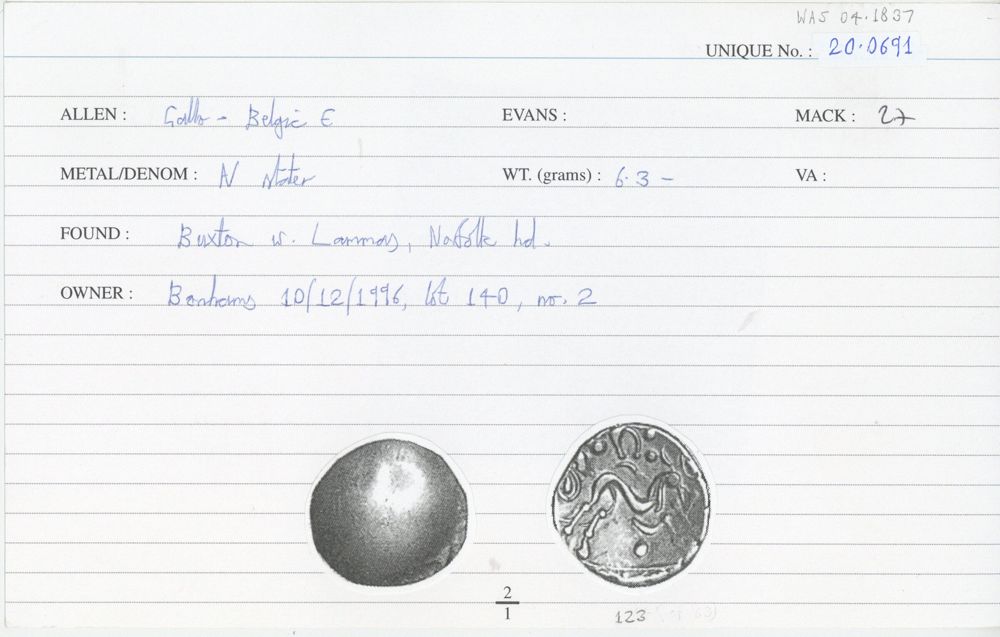 WAS 04.1837
UNIQUE No. : 20.0691
ALLEN : Gallo - Belgic E EVANS : MACK : 27
METAL/DENOM : N stater WT. (grams) : 6.3 - VA :
FOUND : Buxton w. Lammas, Norfolk hd.
OWNER : Bonhams 10/12/1996, lot 140, no. 2
2
1
123